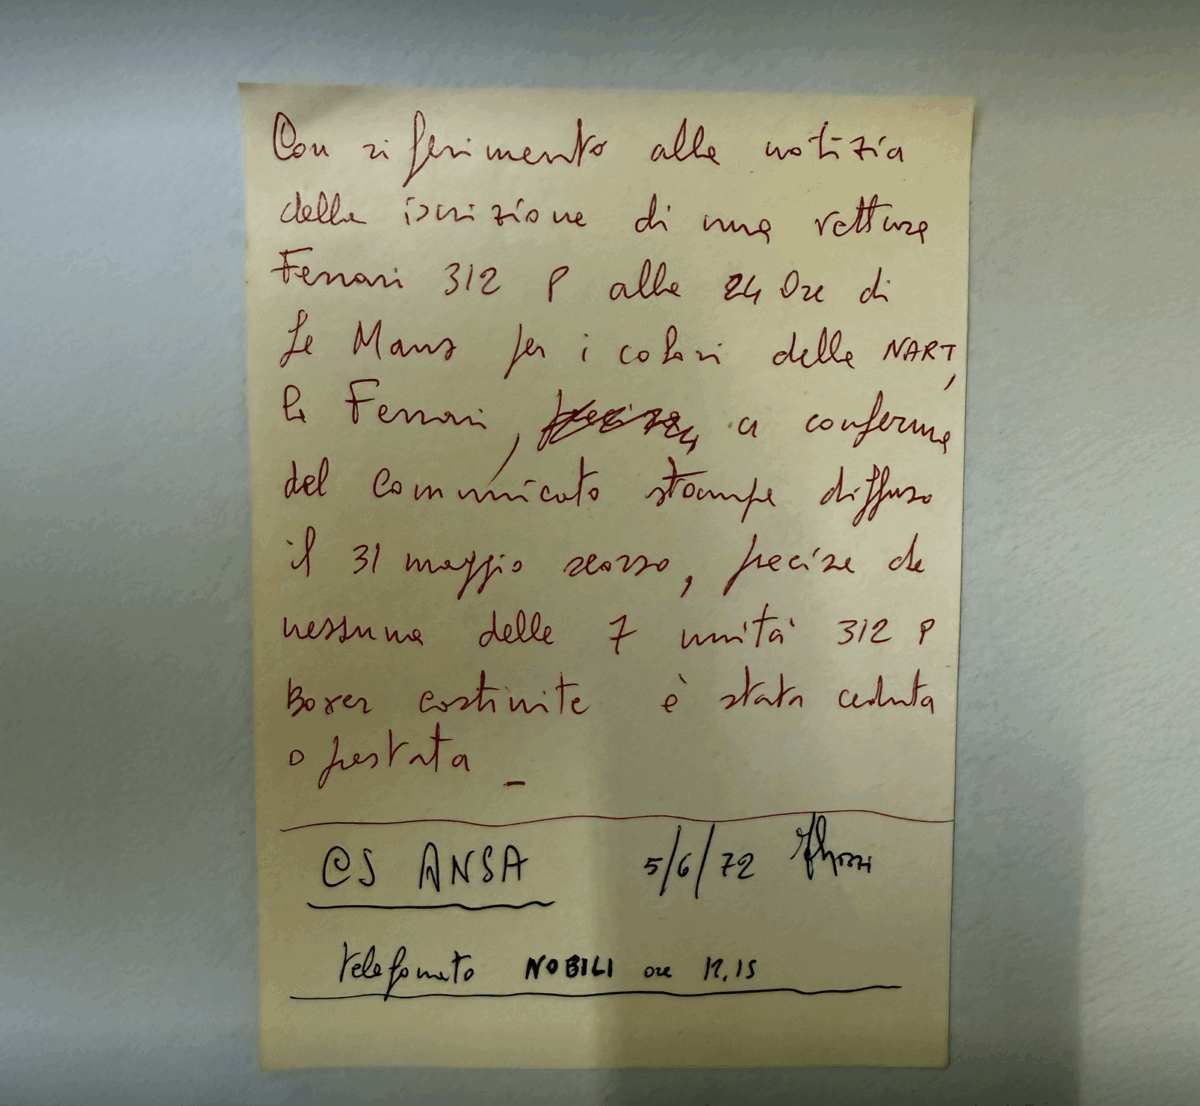 Con riferimento alla notizia
della iscrizione di una vettura
Ferrari 312 P alla 24 Ore di
Le Mans per i colori della NART,
la Ferrari, precisa, a conferma
del comunicato stampa diffuso
il 31 maggio scorso, precisa che
nessuna delle 7 unità 312 P
Boxer costruite è stata ceduta
o prestata _
CS ANSA 5/6/72
telefonato NOBILI ore 12,15